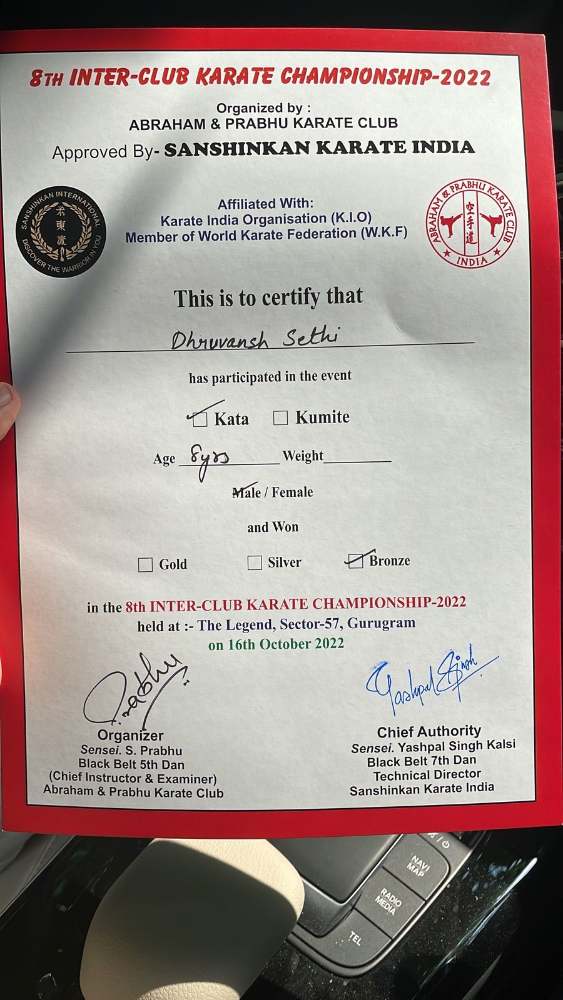 8TH INTER-CLUB KARATE CHAMPIONSHIP-2022
Organized by :
ABRAHAM & PRABHU KARATE CLUB
Approved By- SANSHINKAN KARATE INDIA
SANSHINKAN INTERNATIONAL
DISCOVER THE WARRIOR IN YOU
Affiliated With:
Karate India Organisation (K.I.O)
Member of World Karate Federation (W.K.F)
ABRAHAM & PRABHU KARATE CLUB
空手道
INDIA
This is to certify that
Dhruvansh Sethi
has participated in the event
Kata Kumite
Age 8yrs Weight
Male / Female
and Won
Gold Silver Bronze
in the 8th INTER-CLUB KARATE CHAMPIONSHIP-2022
held at :- The Legend, Sector-57, Gurugram
on 16th October 2022
Prabhu
Yashpal Singh
Organizer
Sensei. S. Prabhu
Black Belt 5th Dan
(Chief Instructor & Examiner)
Abraham & Prabhu Karate Club
Chief Authority
Sensei. Yashpal Singh Kalsi
Black Belt 7th Dan
Technical Director
Sanshinkan Karate India
NAVI
MAP
RADIO
MEDIA
TEL